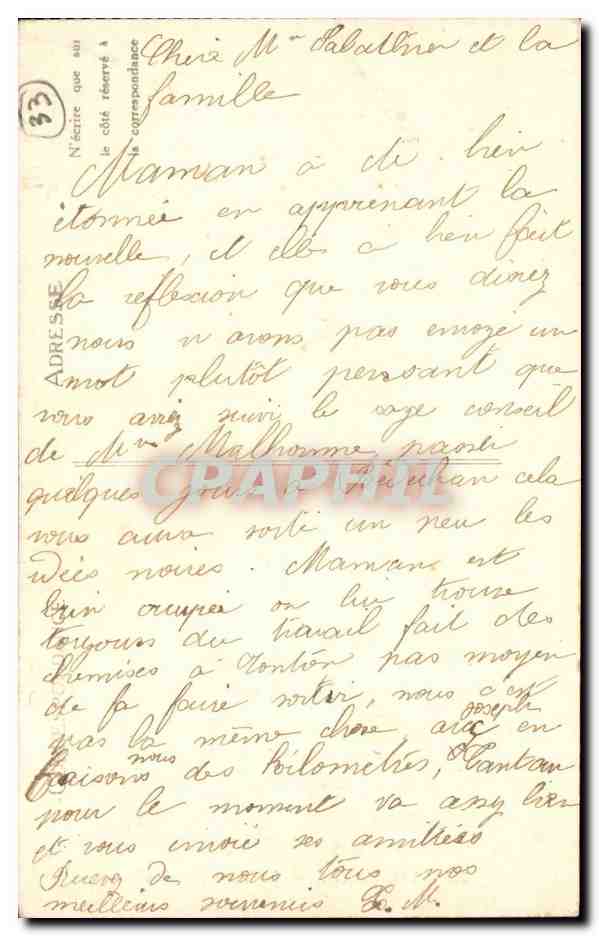 33
N'écrire que sur
le côté réservé à
la correspondance
ADRESSE
Chère Mme et la
famille
Maman a été bien
étonnée en apprenant la
nouvelle, et elle a bien fait
la reflexion que vous direz
nous n'avons pas envoyé un
mot plutôt pensant que
vous aviez suivi le sage conseil
de Mme Malhomme passer
quelques jours à cela
vous aura sorti un peu les
idées noires. Maman est
bien occupée on lui trouve
toujours du travail fait des
chemises à Tonton pas moyen
de la faire sortir, nous c'est
pas la même chose avec Joseph en
faisons nous des kilomètres,
pour le moment va assez bien
et vous envoie ses amitiées
de nous tous nos
meilleurs souvenirs L. M.
CPAPHIL